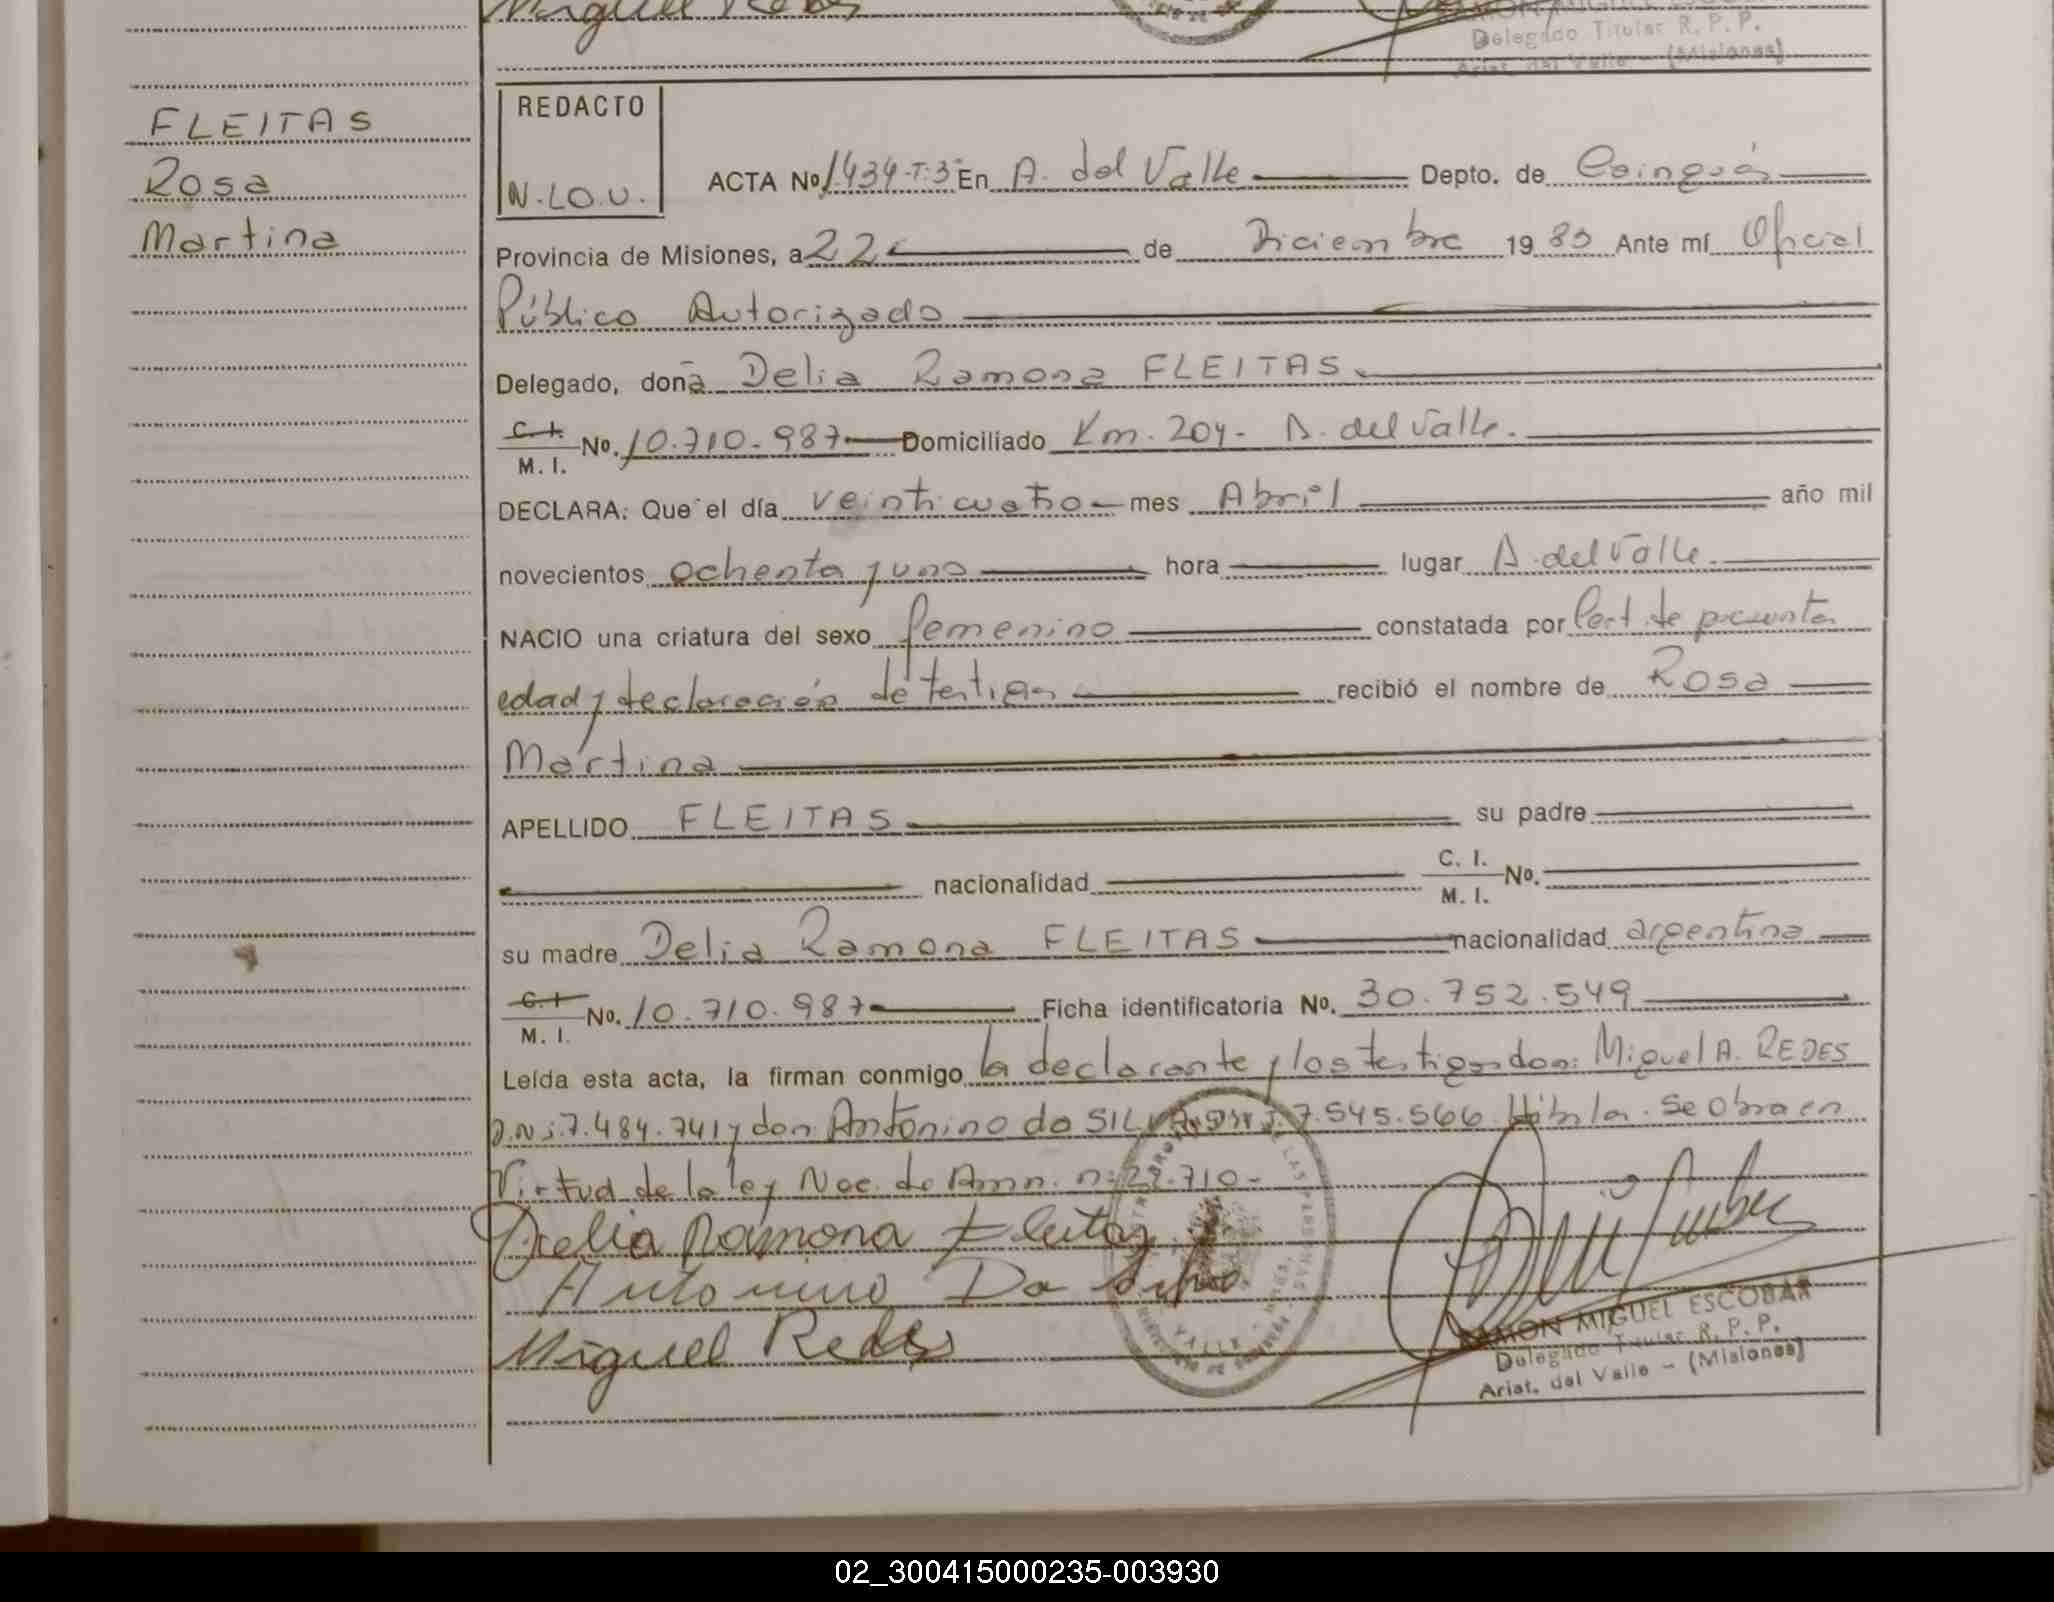 Miguel Redes
Delegado Titular R. P. P.
Arist. del Valle - (Misiones)
FLEITAS
Rosa
Martina
REDACTO
N. LO. U.
ACTA Nº 1.434-T:3º En A. del Valle Depto. de Cainguás
Provincia de Misiones, a 22 de Diciembre 1983 Ante mí Oficial
Público Autorizado
Delegado, doña Delia Ramona FLEITAS
C. I.
M. I. Nº. 10.710.987 Domiciliado Km. 204- A. del Valle.
DECLARA: Que el día veinticuatro mes Abril año mil
novecientos ochenta y uno hora lugar A. del Valle
NACIO una criatura del sexo femenino constatada por Cert. de presunta
edad y declaración de testigos recibió el nombre de Rosa
Martina
APELLIDO FLEITAS su padre
nacionalidad C. I.
M. I. Nº.
su madre Delia Ramona FLEITAS nacionalidad argentina
C. I.
M. I. Nº. 10.710.987 Ficha identificatoria Nº. 30.752.549
Leída esta acta, la firman conmigo la declarante y los testigos don: Miguel A. REDES
D.N.I. 7.484.741 y don Antonino do SILVA 7.545.566 Se obra en
Virtud de la ley Nac. de Amn. nº 22.710-
Delia Ramona Fleitas
Antonino Da Silva
Miguel Redes
RAMON MIGUEL ESCOBAR
Delegado Titular R. P. P.
Arist. del Valle - (Misiones)
02_300415000235-003930